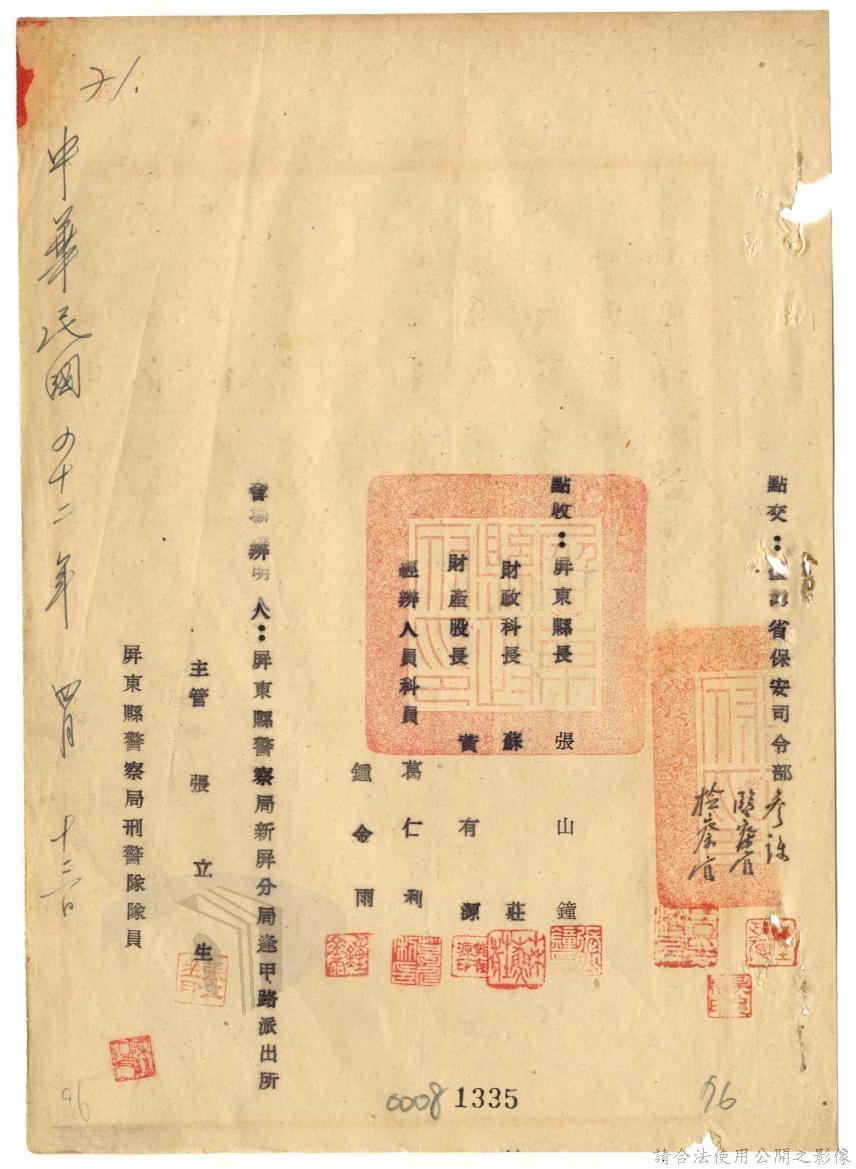 點交：臺灣省保安司令部
檢察官
點收：屏東縣長 張山鐘
財政科長 蘇莊
財產股長 黃有源
經辦人員科員 葛仁利
鍾金雨
會場證明人：屏東縣警察局新屏分局逢甲路派出所
主管 張立生
屏東縣警察局刑警隊隊員
中華民國四十二年四月十三日
21.
96
0008 1335
96
請合法使用公開之影像